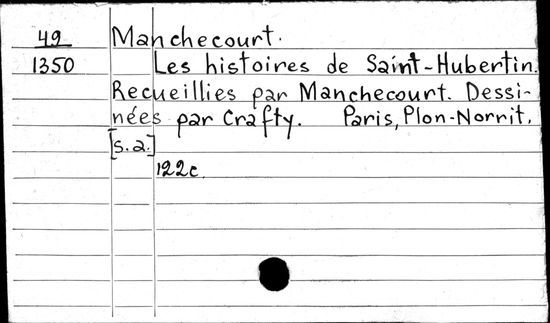 49 Manchecourt.
1350 Les histoires de Saint-Hubertin.
Recueillies par Manchecourt. Dessi-
nées par Crafty. Paris, Plon-Norrit.
[s.a.]
122c.